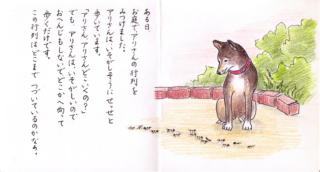 ある日
お庭でアリさんの行列を
みつけました。
アリさんは、いそがしそうに せっせと
歩いています。
「アリさん、アリさん、どこいくの？」
でも、アリさんは、いそがしいので
おへんじもしないで、どこかへ向って
歩くだけです。
この行列は、どこまで つづいているのかなあ。